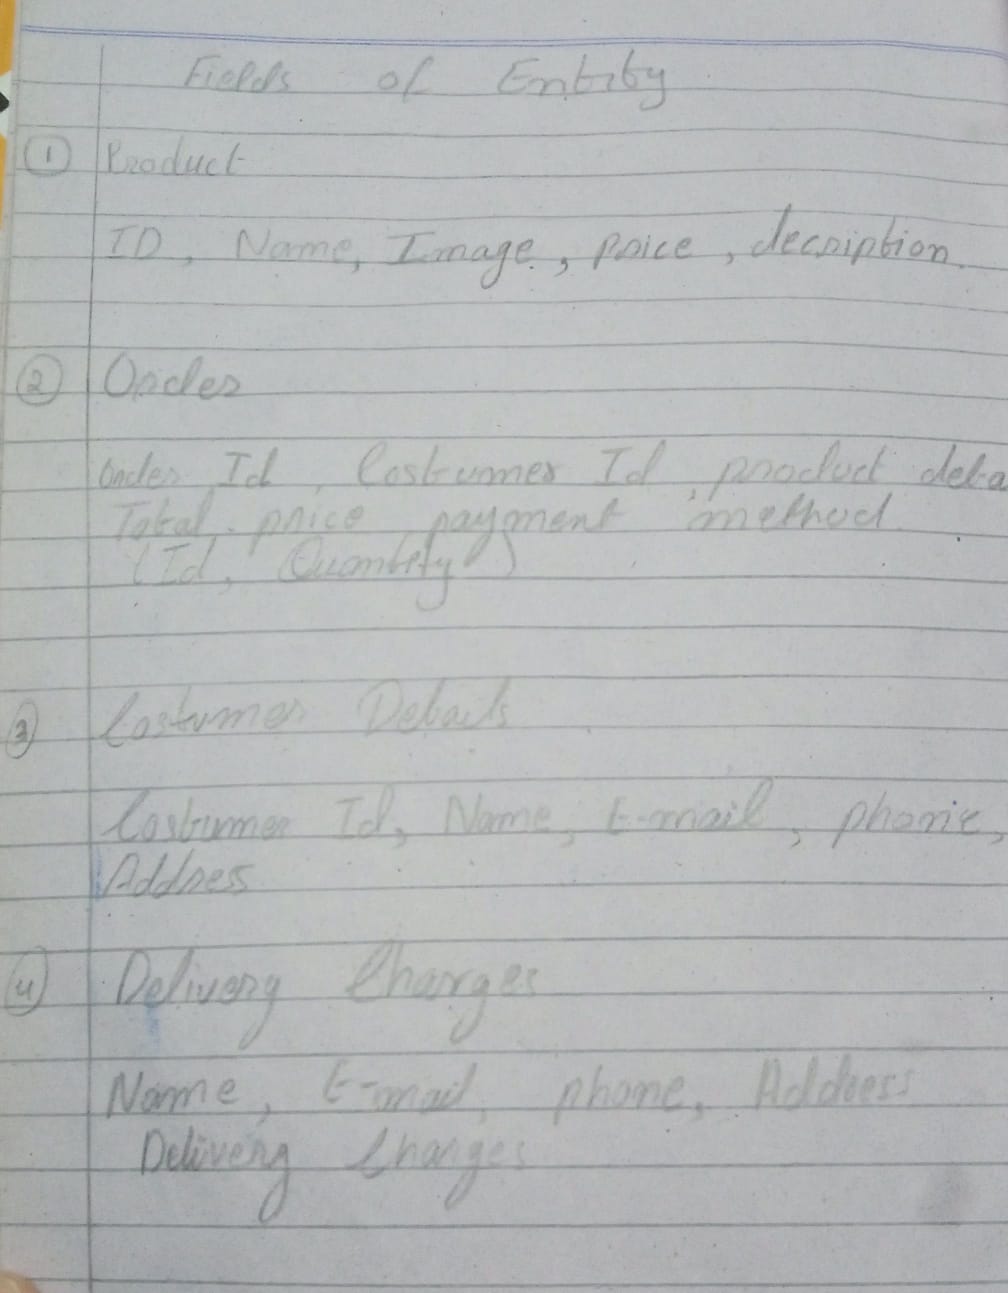 Fields of Entity
① Product
ID, Name, Image, price, decription
② Order
Order Id, Costumer Id, product deta
Total price payment method
(Id, Quantity)
③ Costumer Details
Costumer Id, Name, E-mail, phone,
Address
④ Delivery Charges
Name, E-mail, phone, Address
Delivery Charges